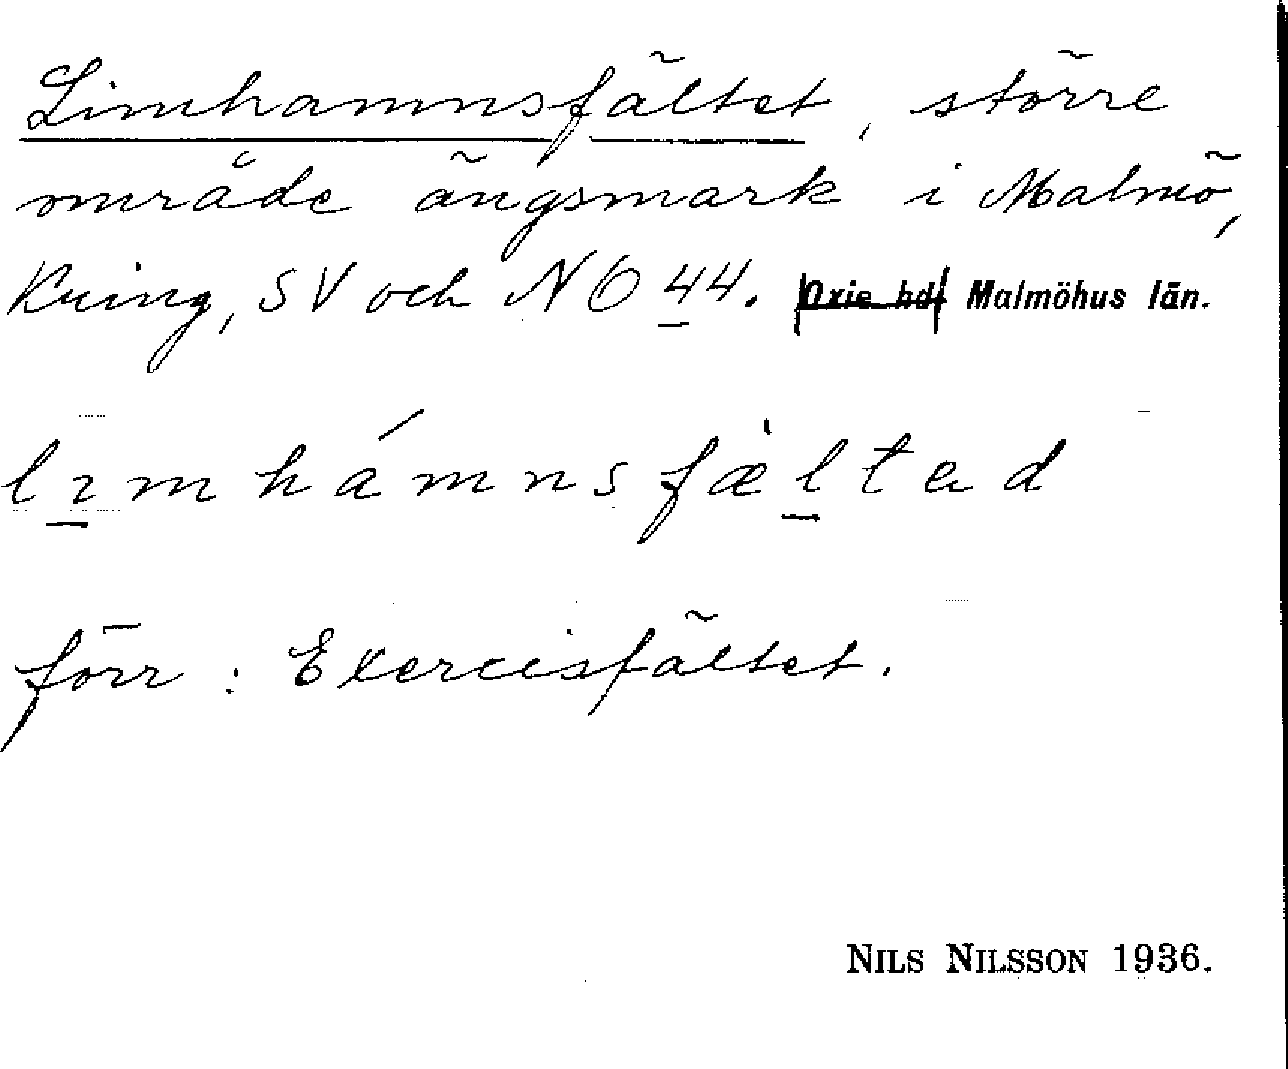 Limhamnsfältet, större
område ängsmark i Malmö,
kring, SV och NO 44. Oxie hd Malmöhus län.
lımhámnsfæ̀ltəd
förr: Exercisfältet.
NILS NILSSON 1936.